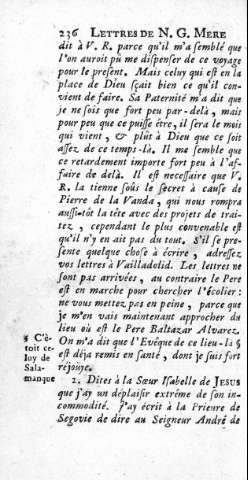 236 LETTRES DE N. G. MERE
dit à V. R. parce qu'il m'a semblé que
l'on auroit pû me dispenser de ce voyage
pour le present. Mais celuy qui est en la
place de Dieu sçait bien ce qu'il con-
vient de faire. Sa Paternité m'a dit que
je ne sois que fort peu par-delà, mais
pour peu que ce puisse être, il sera le mois
qui vient, & plût à Dieu que ce soit
assez de ce temps-là. Il me semble que
ce retardement importe fort peu à l'af-
faire de delà. Il est necessaire que V.
R. la tienne sous le secret à cause de
Pierre de la Vanda, qui nous rompra
aussi-tôt la tête avec des projets de trai-
tez, cependant le plus convenable est
qu'il n'y en ait pas du tout. S'il se pre-
sente quelque chose à écrire, adressez
vos lettres à Vailladolid. Les lettres ne
sont pas arrivées, au contraire le Pere
est en marche pour chercher l'écolier:
ne vous mettez pas en peine, parce que
je m'en vais maintenant approcher du
lieu où est le Pere Baltazar Alvarez.
On m'a dit que l'Evêque de ce lieu-là §
est déja remis en santé, dont je suis fort
réjouye.
§ C'é-
toit ce-
luy de
Sala-
manque
2. Dites à la Sœur Isabelle de JESUS
que j'ay un déplaisir extrême de son in-
commodité. J'ay écrit à la Prieure de
Segovie de dire au Seigneur André de